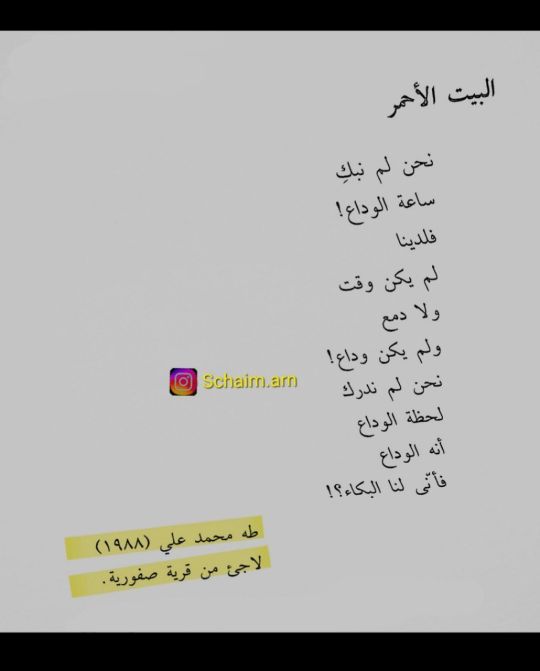 البيت الأحمر
نحن لم نبكِ
ساعة الوداع!
فلدينا
لم يكن وقت
ولا دمع
ولم يكن وداع!
نحن لم ندرك
لحظة الوداع
أنه الوداع
فأنّى لنا البكاء؟!
Schaim.am
طه محمد علي (١٩٨٨)
لاجئ من قرية صفورية.